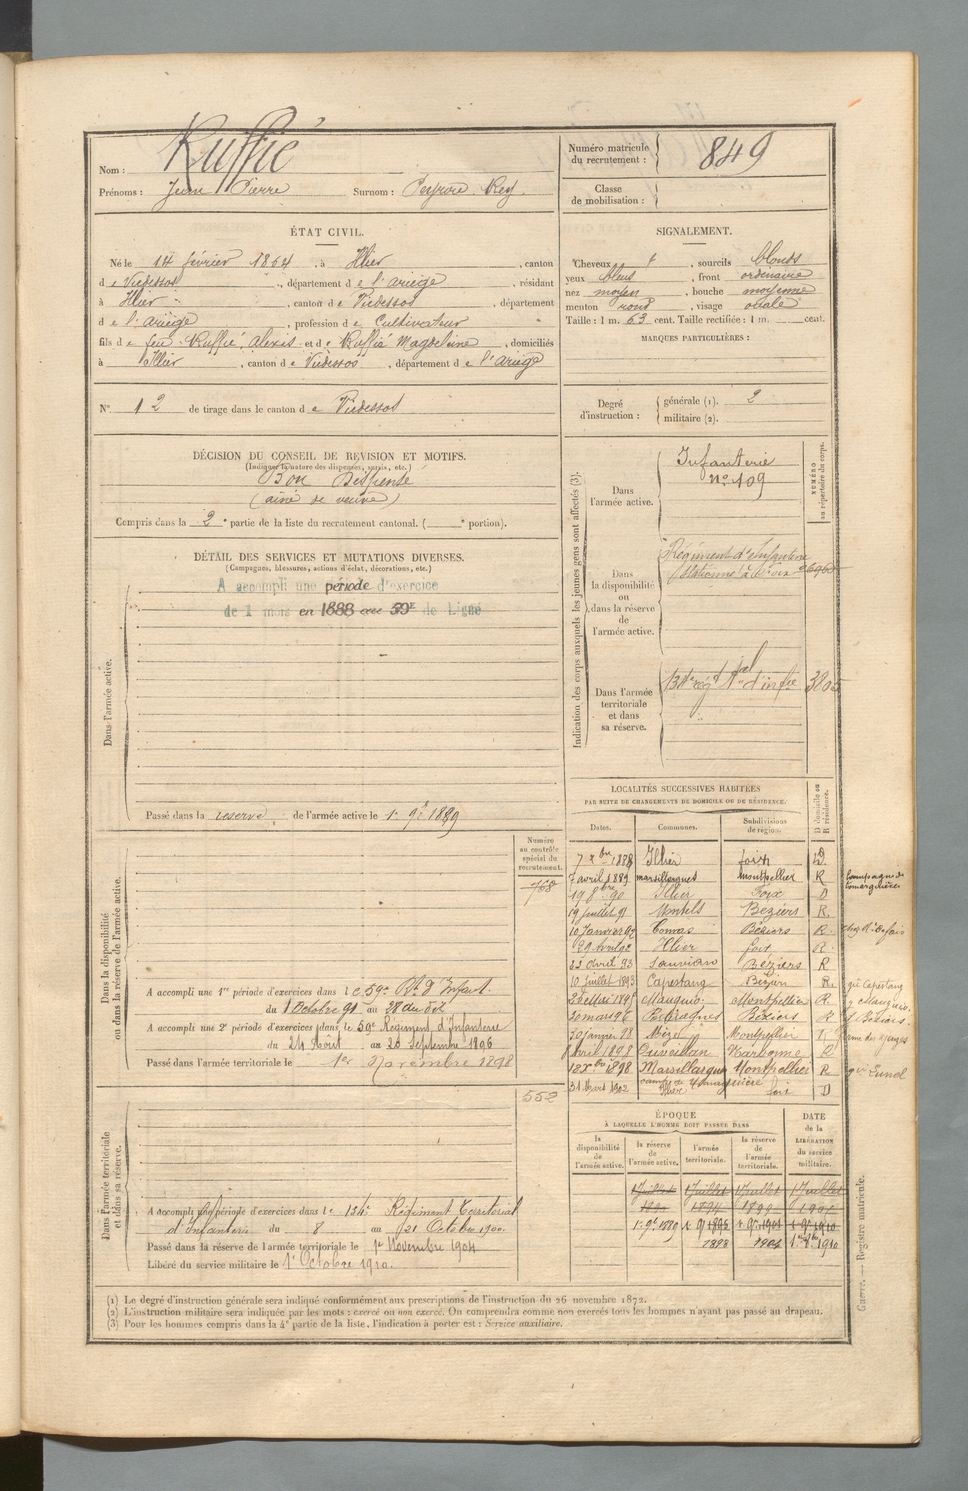 Nom : Ruffié
Prénoms : Jean Pierre Surnom : Peyrore Rey.
Numéro matricule du recrutement : 849
Classe de mobilisation :
ÉTAT CIVIL.
Né le 14 février 1864, à Illier, canton
de Vicdessos, département de l'ariège, résidant
à Illier, canton de Vicdessos, département
de l'ariège, profession de Cultivateur
fils de feu Ruffié, Alexis et de Ruffié Magdeleine, domiciliés
à Illier, canton de Vicdessos, département de l'ariège
N° 12 de tirage dans le canton de Vicdessos
SIGNALEMENT.
Cheveux, sourcils blonds
yeux bleus, front ordinaire
nez moyen, bouche moyenne
menton rond, visage ovale
Taille : 1 m. 63 cent. Taille rectifiée : 1 m. cent.
MARQUES PARTICULIÈRES :
Degré d'instruction : générale (1). 2
militaire (2).
DÉCISION DU CONSEIL DE REVISION ET MOTIFS.
(Indiquer la nature des dispenses, sursis, etc.)
Bon Dispensé
(aîné de veuve)
Compris dans la 2e partie de la liste du recrutement cantonal. ( e portion).
DÉTAIL DES SERVICES ET MUTATIONS DIVERSES.
(Campagnes, blessures, actions d'éclat, décorations, etc.)
Dans l'armée active.
A accompli une période d'exercice
de 1 mois en 1888 au 59e de Ligne
Passé dans la reserve de l'armée active le 1er 9bre 1889
Indication des corps auxquels les jeunes gens sont affectés (3).
NUMÉRO au répertoire du corps.
Dans l'armée active.
Infanterie
n° 109
Dans la disponibilité ou dans la réserve de l'armée active.
Régiment d'Infanterie
stationné à Foix
Dans l'armée territoriale et dans sa réserve.
3805
Dans la disponibilité ou dans la réserve de l'armée active.
Numéro au contrôle spécial du recrutement.
768
A accompli une 1re période d'exercices dans le 59e Rt d'Infant.
du 1 Octobre 91 au 28 au dit
A accompli une 2e période d'exercices dans le 59e Régiment d'Infanterie
du 24 Août au 20 Septembre 1896
Passé dans l'armée territoriale le 1er Novembre 1898
Dans l'armée territoriale et dans sa réserve.
552
A accompli une période d'exercices dans le 134e Régiment Territorial
d'Infanterie du 8 au 21 Octobre 1900.
Passé dans la réserve de l'armée territoriale le 1er Novembre 1904
Libéré du service militaire le 1er Octobre 1910.
LOCALITÉS SUCCESSIVES HABITÉES
PAR SUITE DE CHANGEMENTS DE DOMICILE OU DE RÉSIDENCE.
Dates. Communes. Subdivisions de région. D domicile ou R résidence.
7 xbre 1888 Illier foix D.
7 avril 1889 marsillargues montpellier R
19 8bre 90 Illier Foix D
19 juillet 91 Montels Beziers R.
10 Janvier 92 Béziers R.
Illier foix R
avril 93 Sauvian Béziers R
10 juillet 1893 Capestang Béziers R.
Mauguio Montpellier R
20 mai 96 Béziers R
30 janvier 98 Mèze Montpellier
avril 1898 Ouveillan Narbonne R
18 xbre 1898 Marsillargues Montpellier R
31 Mars 1902 foix D
ÉPOQUE
À LAQUELLE L'HOMME DOIT PASSER DANS
DATE de la LIBÉRATION du service militaire.
la disponibilité de l'armée active. la réserve de l'armée active. l'armée territoriale. la réserve de l'armée territoriale.
1 Juillet 1 Juillet 1 Juillet 1 Juillet
1er 9bre 1889 1er 9 1895 1er 9bre 1901 1er 9bre 1910
1898 1904 1er 8bre 1910
(1) Le degré d'instruction générale sera indiqué conformément aux prescriptions de l'instruction du 26 novembre 1872.
(2) L'instruction militaire sera indiquée par les mots : exercé ou non exercé. On comprendra comme non exercés tous les hommes n'ayant pas passé au drapeau.
(3) Pour les hommes compris dans la 4e partie de la liste, l'indication à porter est : Service auxiliaire.
Guerre. — Registre matricule.